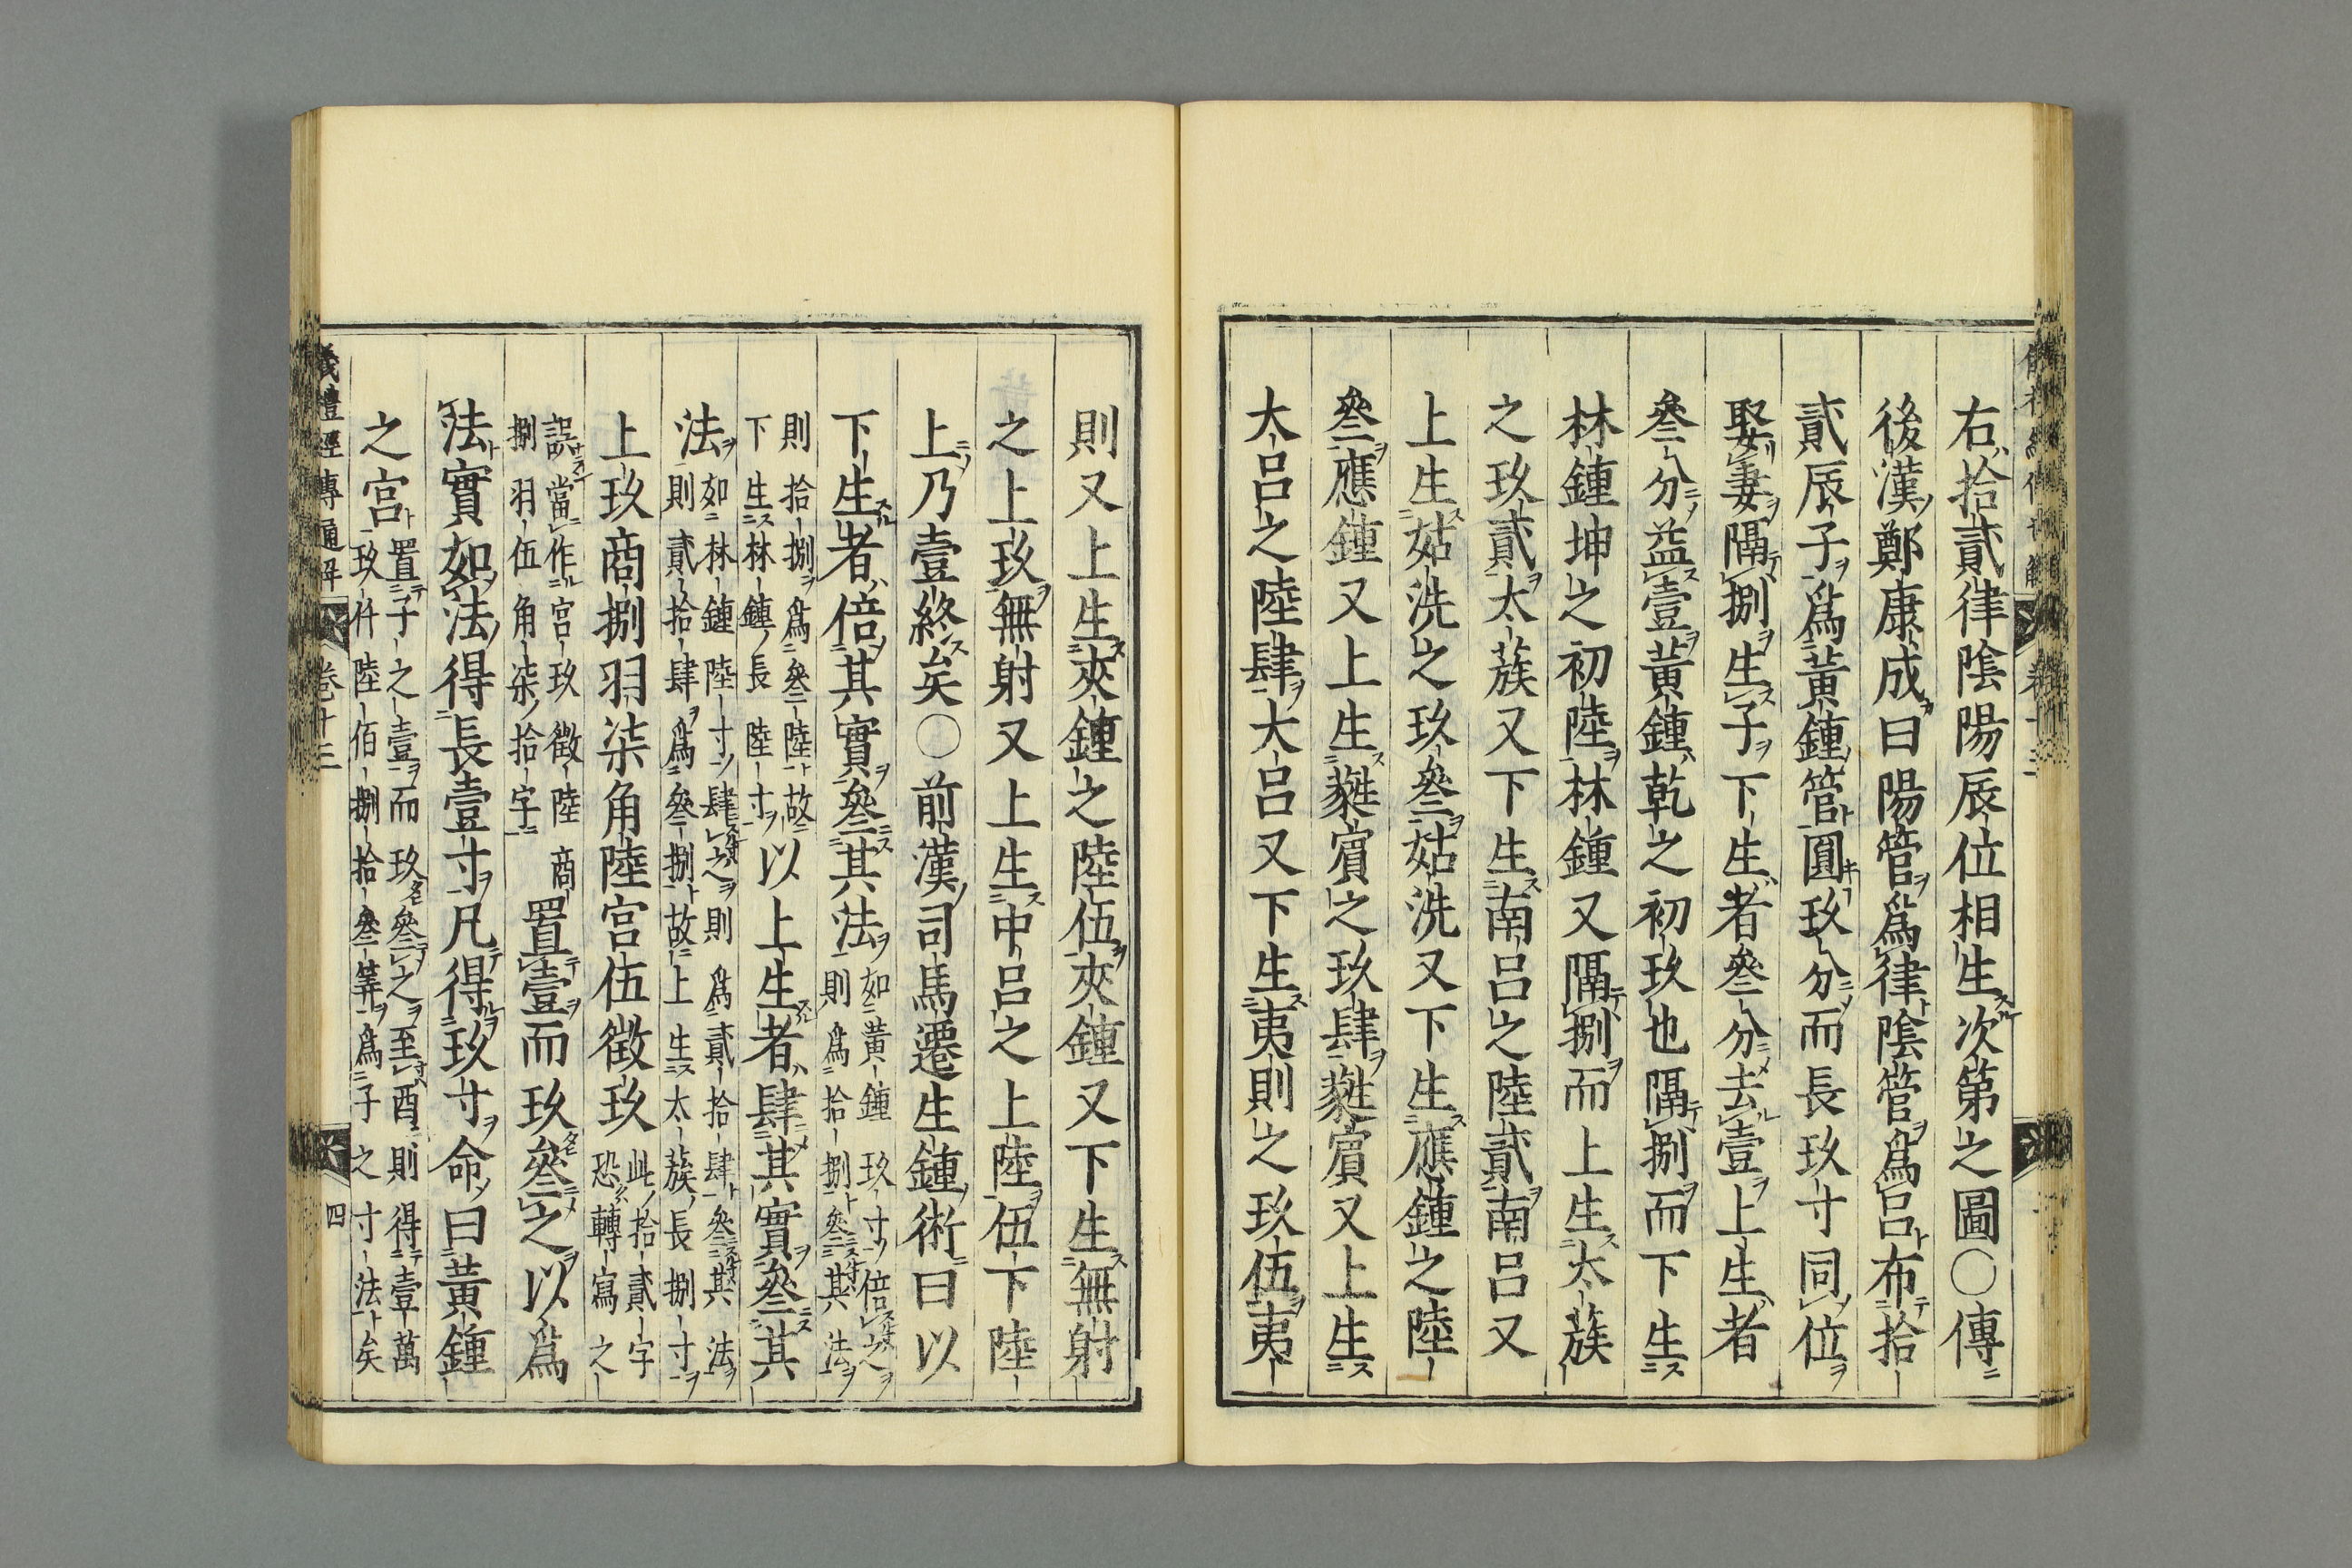 右拾貳律陰陽辰位相生次第之圖〇傳
後漢鄭康成曰陽管爲律陰管爲呂布拾
貳辰子爲黃鍾管圓玖分而長玖寸同位
娶妻隔捌生子下生者叄分去壹上生者
叄分益壹黃鍾乾之初玖也隔捌而下生
林鍾坤之初陸林鍾又隔捌而上生太蔟
之玖貳太蔟又下生南呂之陸貳南呂又
上生姑洗之玖叄姑洗又下生應鍾之陸
叄應鍾又上生蕤賓之玖肆蕤賓又上生
大呂之陸肆大呂又下生夷則之玖伍夷
則又上生夾鍾之陸伍夾鍾又下生無射
之上玖無射又上生中呂之上陸伍下陸
上乃壹終矣〇前漢司馬遷生鍾術曰以
下生者倍其實叄其法如黃鍾玖寸倍之
則爲拾捌叄其法
則拾捌爲叄陸故
下生林鍾長陸寸以上生者肆其實叄其
法如林鍾陸寸肆之則爲貳拾肆叄其法
則貳拾肆爲叄捌故上生太蔟長捌寸
上玖商捌羽柒角陸宮伍徵玖此拾貳字
恐轉寫之
誤當作宮玖徵陸商
捌羽伍角柒拾字置壹而玖叄之以爲
法實如法得長壹寸凡得玖寸命曰黃鍾
之宮置子之壹而玖叄之至酉則得壹萬
玖仟陸佰捌拾叄筭爲子之寸法矣
儀禮經傳通解 卷十三 四